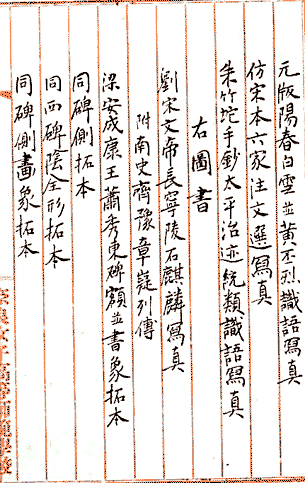 元版陽春白雪並黃丕烈識語寫真
仿宋本六家注文選寫真
朱竹垞手鈔太平治迹統類識語寫真
右圖書
劉宋文帝長寧陵石麒麟寫真
附南史齊豫章嶷列傳
梁安成康王蕭秀東碑額並書象拓本
同碑側拓本
同西碑陰全形拓本
同碑側畫象拓本